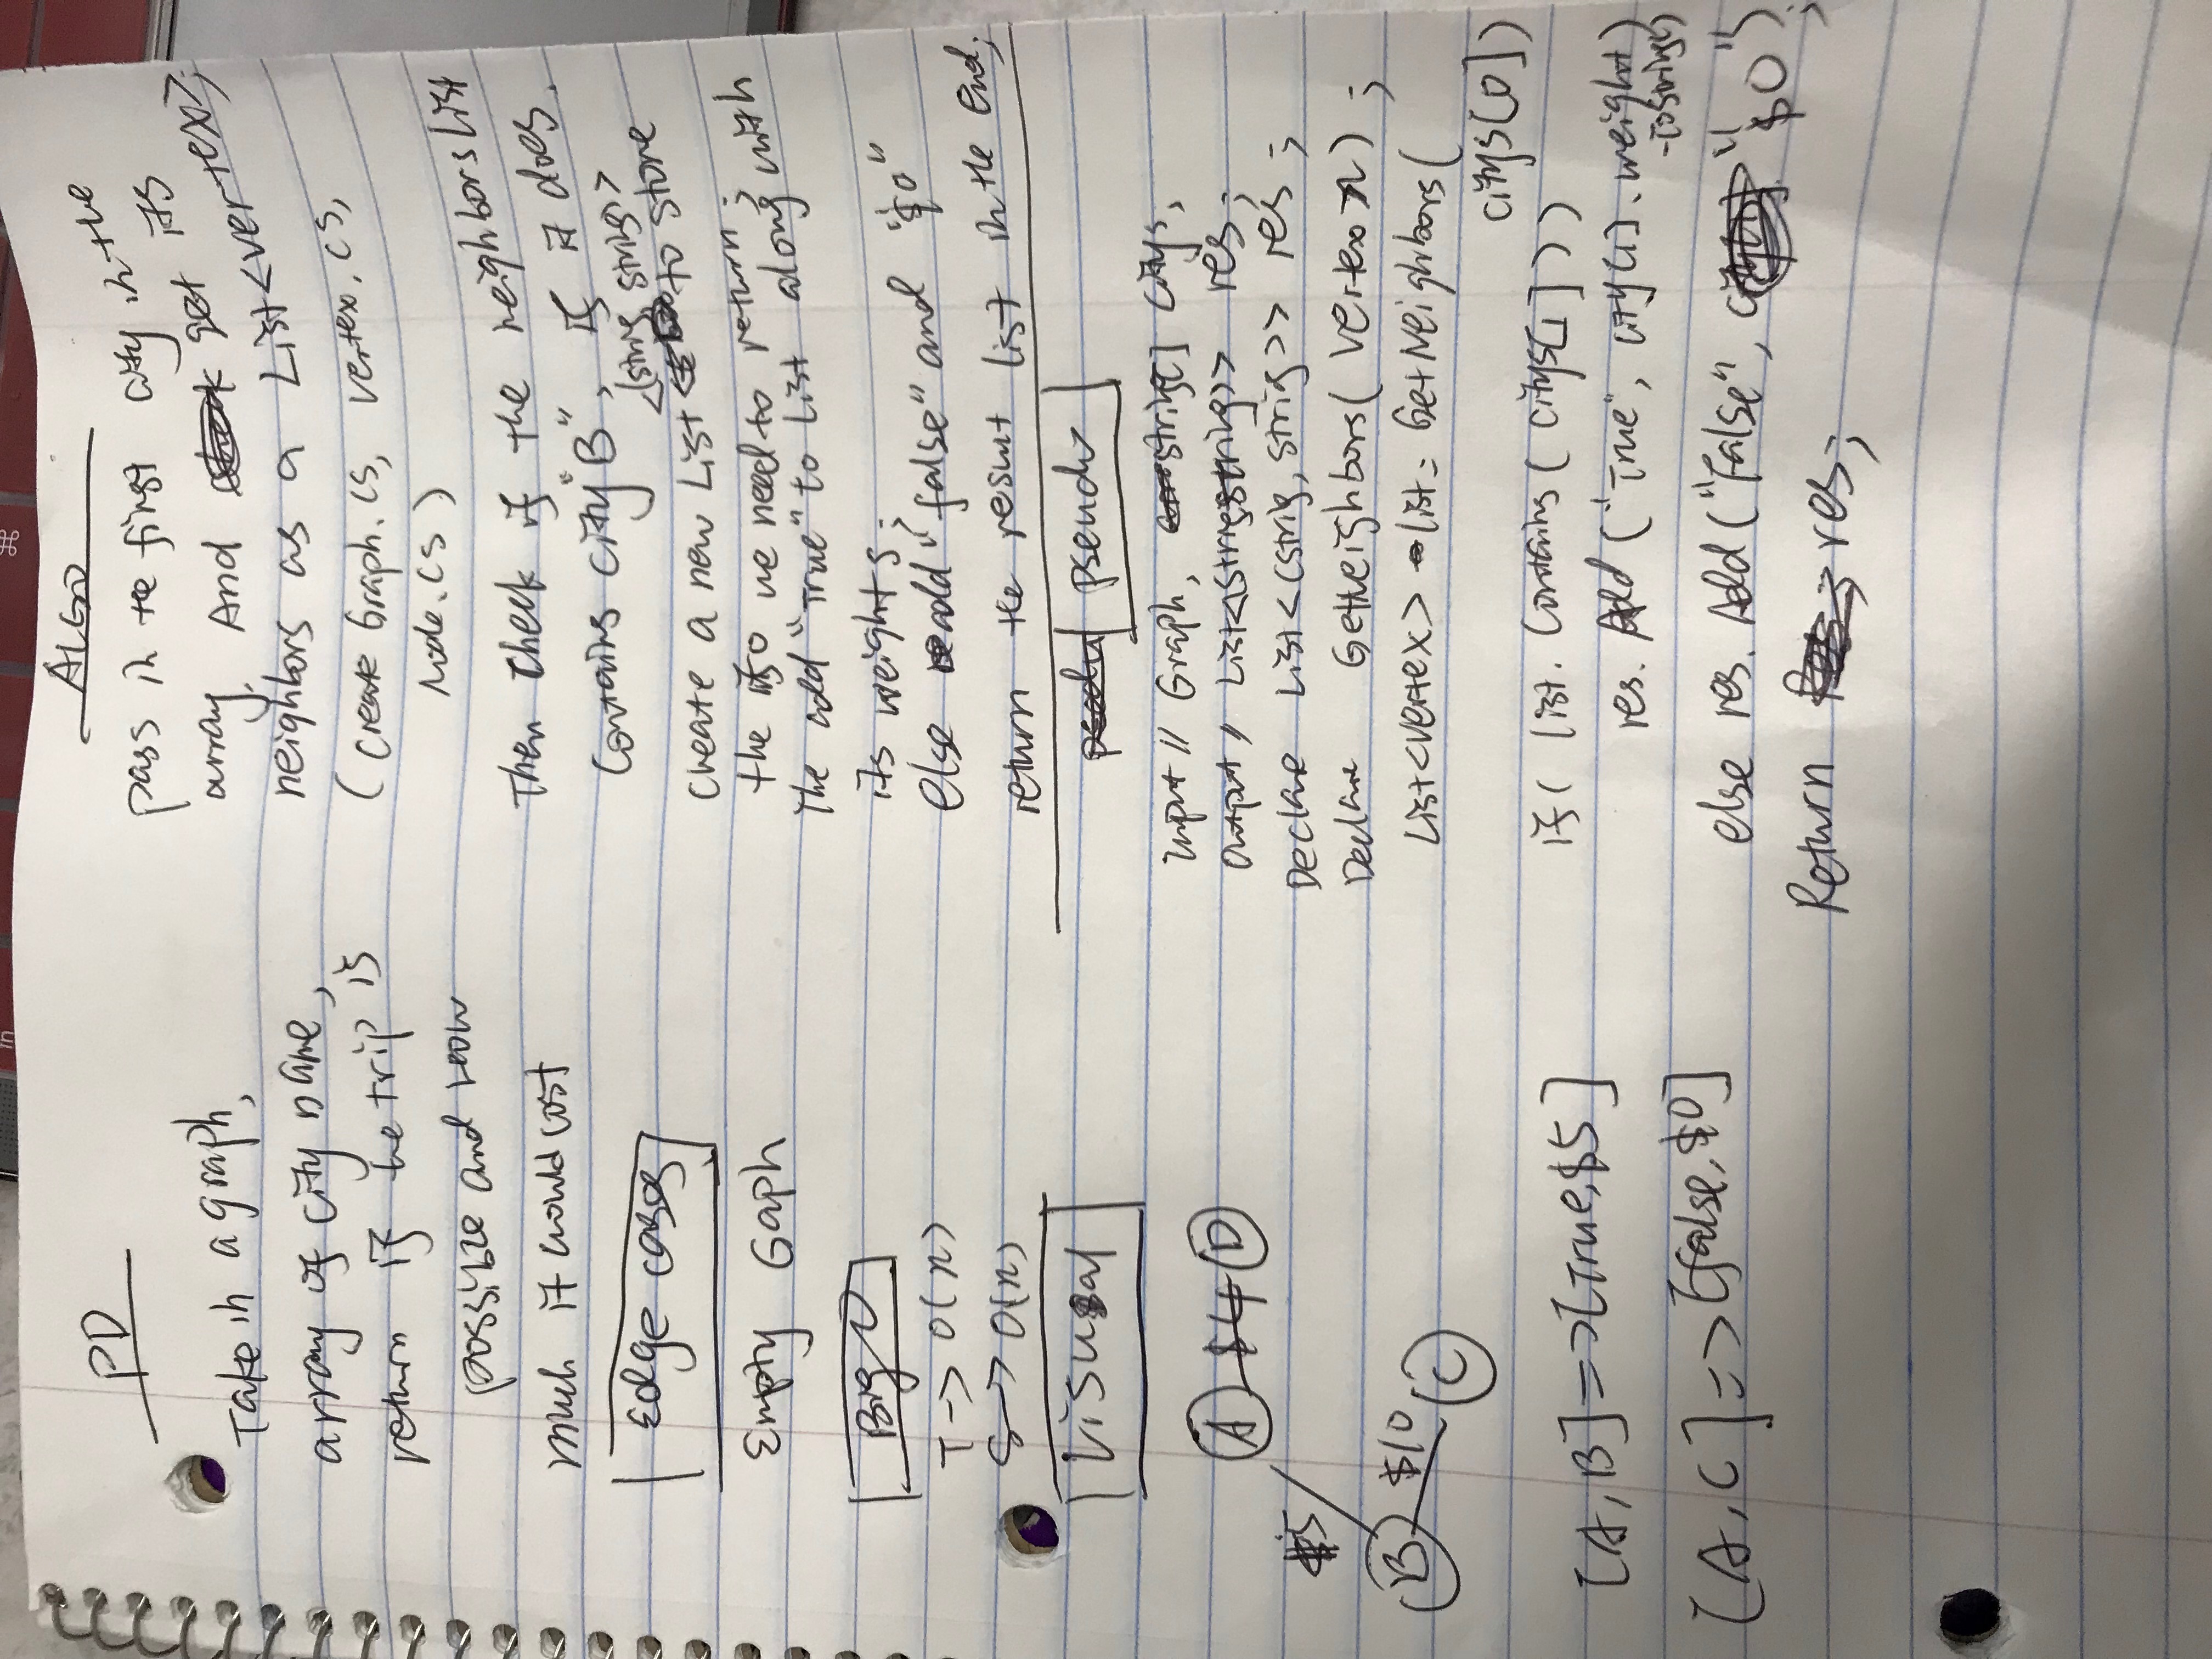 PD
Take in a graph,
array of city name,
return if the trip is
possible and how
much it would cost
Edge cases
Empty Gaph
Big O
T -> O(n)
S -> O(n)
Visual
A $4 D
$5
B $10
C
[A, B] => [True, $5]
[A, C] => [false, $0]
ALGO
pass in the first city in the
array. And get its
neighbors as a List<vertex>;
(create Graph.cs, vertex.cs,
Node.cs)
Then check if the neighbors list
contains city "B", if it does.
<(string, string)>
create a new List to store
the ifo we need to return;
The add "True" to List along with
its weights;
else add "false" and "$0"
return the result list in the end;
pseudo
Input // Graph, string[] citys,
Output // List<(string string)> res;
Declare List<(strig, strig)> res;
Declare GetNeighbors(Vertex n);
List<vertex> list = GetNeighbors(
citys[0])
if( list. Contains( citys[1]))
res. Add ("True", city[1].weight)
.ToString()
else res. Add ("False", "$0");
Return res;